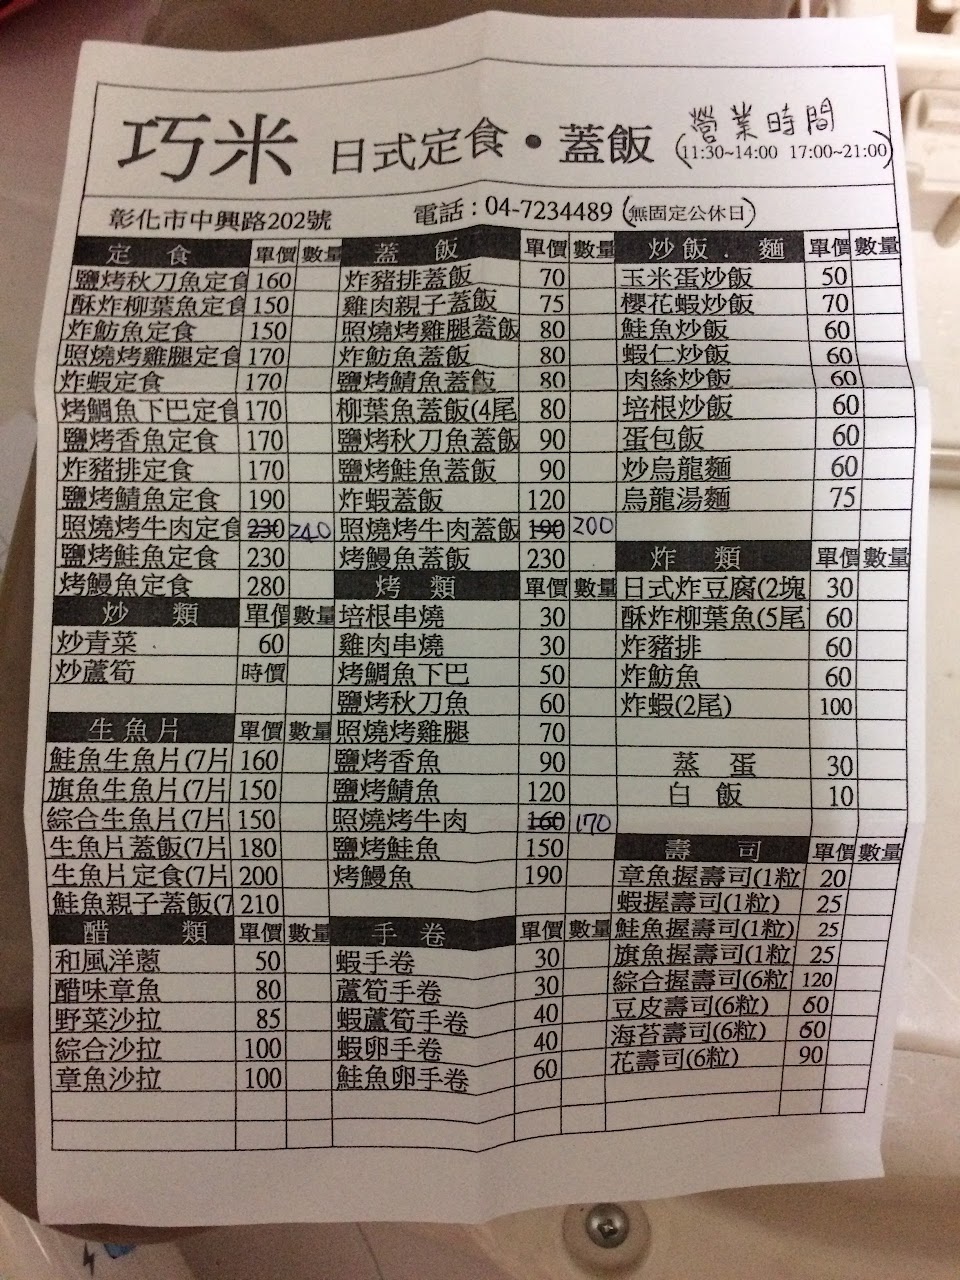 巧米 日式定食•蓋飯 營業時間
(11:30~14:00 17:00~21:00)
彰化市中興路202號 電話:04-7234489(無固定公休日)
定 食 單價 數量
鹽烤秋刀魚定食 160
酥炸柳葉魚定食 150
炸魴魚定食 150
照燒烤雞腿定食 170
炸蝦定食 170
烤鯛魚下巴定食 170
鹽烤香魚定食 170
炸豬排定食 170
鹽烤鯖魚定食 190
照燒烤牛肉定食 230 240
鹽烤鮭魚定食 230
烤鰻魚定食 280
炒 類 單價 數量
炒青菜 60
炒蘆筍 時價
生魚片 單價 數量
鮭魚生魚片(7片 160
旗魚生魚片(7片 150
綜合生魚片(7片 150
生魚片蓋飯(7片 180
生魚片定食(7片 200
鮭魚親子蓋飯(7 210
醋 類 單價 數量
和風洋蔥 50
醋味章魚 80
野菜沙拉 85
綜合沙拉 100
章魚沙拉 100
蓋 飯 單價 數量
炸豬排蓋飯 70
雞肉親子蓋飯 75
照燒烤雞腿蓋飯 80
炸魴魚蓋飯 80
鹽烤鯖魚蓋飯 80
柳葉魚蓋飯(4尾 80
鹽烤秋刀魚蓋飯 90
鹽烤鮭魚蓋飯 90
炸蝦蓋飯 120
照燒烤牛肉蓋飯 190 200
烤鰻魚蓋飯 230
烤 類 單價 數量
培根串燒 30
雞肉串燒 30
烤鯛魚下巴 50
鹽烤秋刀魚 60
照燒烤雞腿 70
鹽烤香魚 90
鹽烤鯖魚 120
照燒烤牛肉 160 170
鹽烤鮭魚 150
烤鰻魚 190
手 卷 單價 數量
蝦手卷 30
蘆筍手卷 30
蝦蘆筍手卷 40
蝦卵手卷 40
鮭魚卵手卷 60
炒飯.麵 單價 數量
玉米蛋炒飯 50
櫻花蝦炒飯 70
鮭魚炒飯 60
蝦仁炒飯 60
肉絲炒飯 60
培根炒飯 60
蛋包飯 60
炒烏龍麵 60
烏龍湯麵 75
炸 類 單價 數量
日式炸豆腐(2塊 30
酥炸柳葉魚(5尾 60
炸豬排 60
炸魴魚 60
炸蝦(2尾) 100
蒸 蛋 30
白 飯 10
壽 司 單價 數量
章魚握壽司(1粒 20
蝦握壽司(1粒) 25
鮭魚握壽司(1粒) 25
旗魚握壽司(1粒 25
綜合握壽司(6粒 120
豆皮壽司(6粒) 60
海苔壽司(6粒) 60
花壽司(6粒) 90